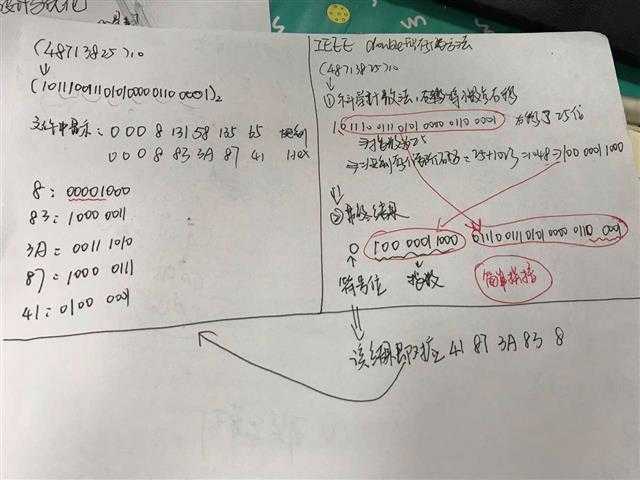 设计与优化
(48713825)10
↓
(10111001110101000001100001)2
文件中显示: 0 0 0 8 131 58 135 65 决制
0 0 0 8 83 3A 87 41 Hex
8: 00001000
83: 1000 0011
3A: 0011 1010
87: 1000 0111
41: 0100 0001
IEEE double 方法
(48713825)10
↓
① 科学计数法, 小数点右移
1.01110 0111 0101 0000 0110 0001 右移了25位
⇒指数为25
= 25+1023=1048 ⇒ 100 0001 1000
⇓
② 拼接结果
0 100 0001 1000 01110 0111 0101 0000 0110 0001
↑ ↓
符号位 指数 简单拼接
⇓
该结果即对应 41 87 3A 83 8